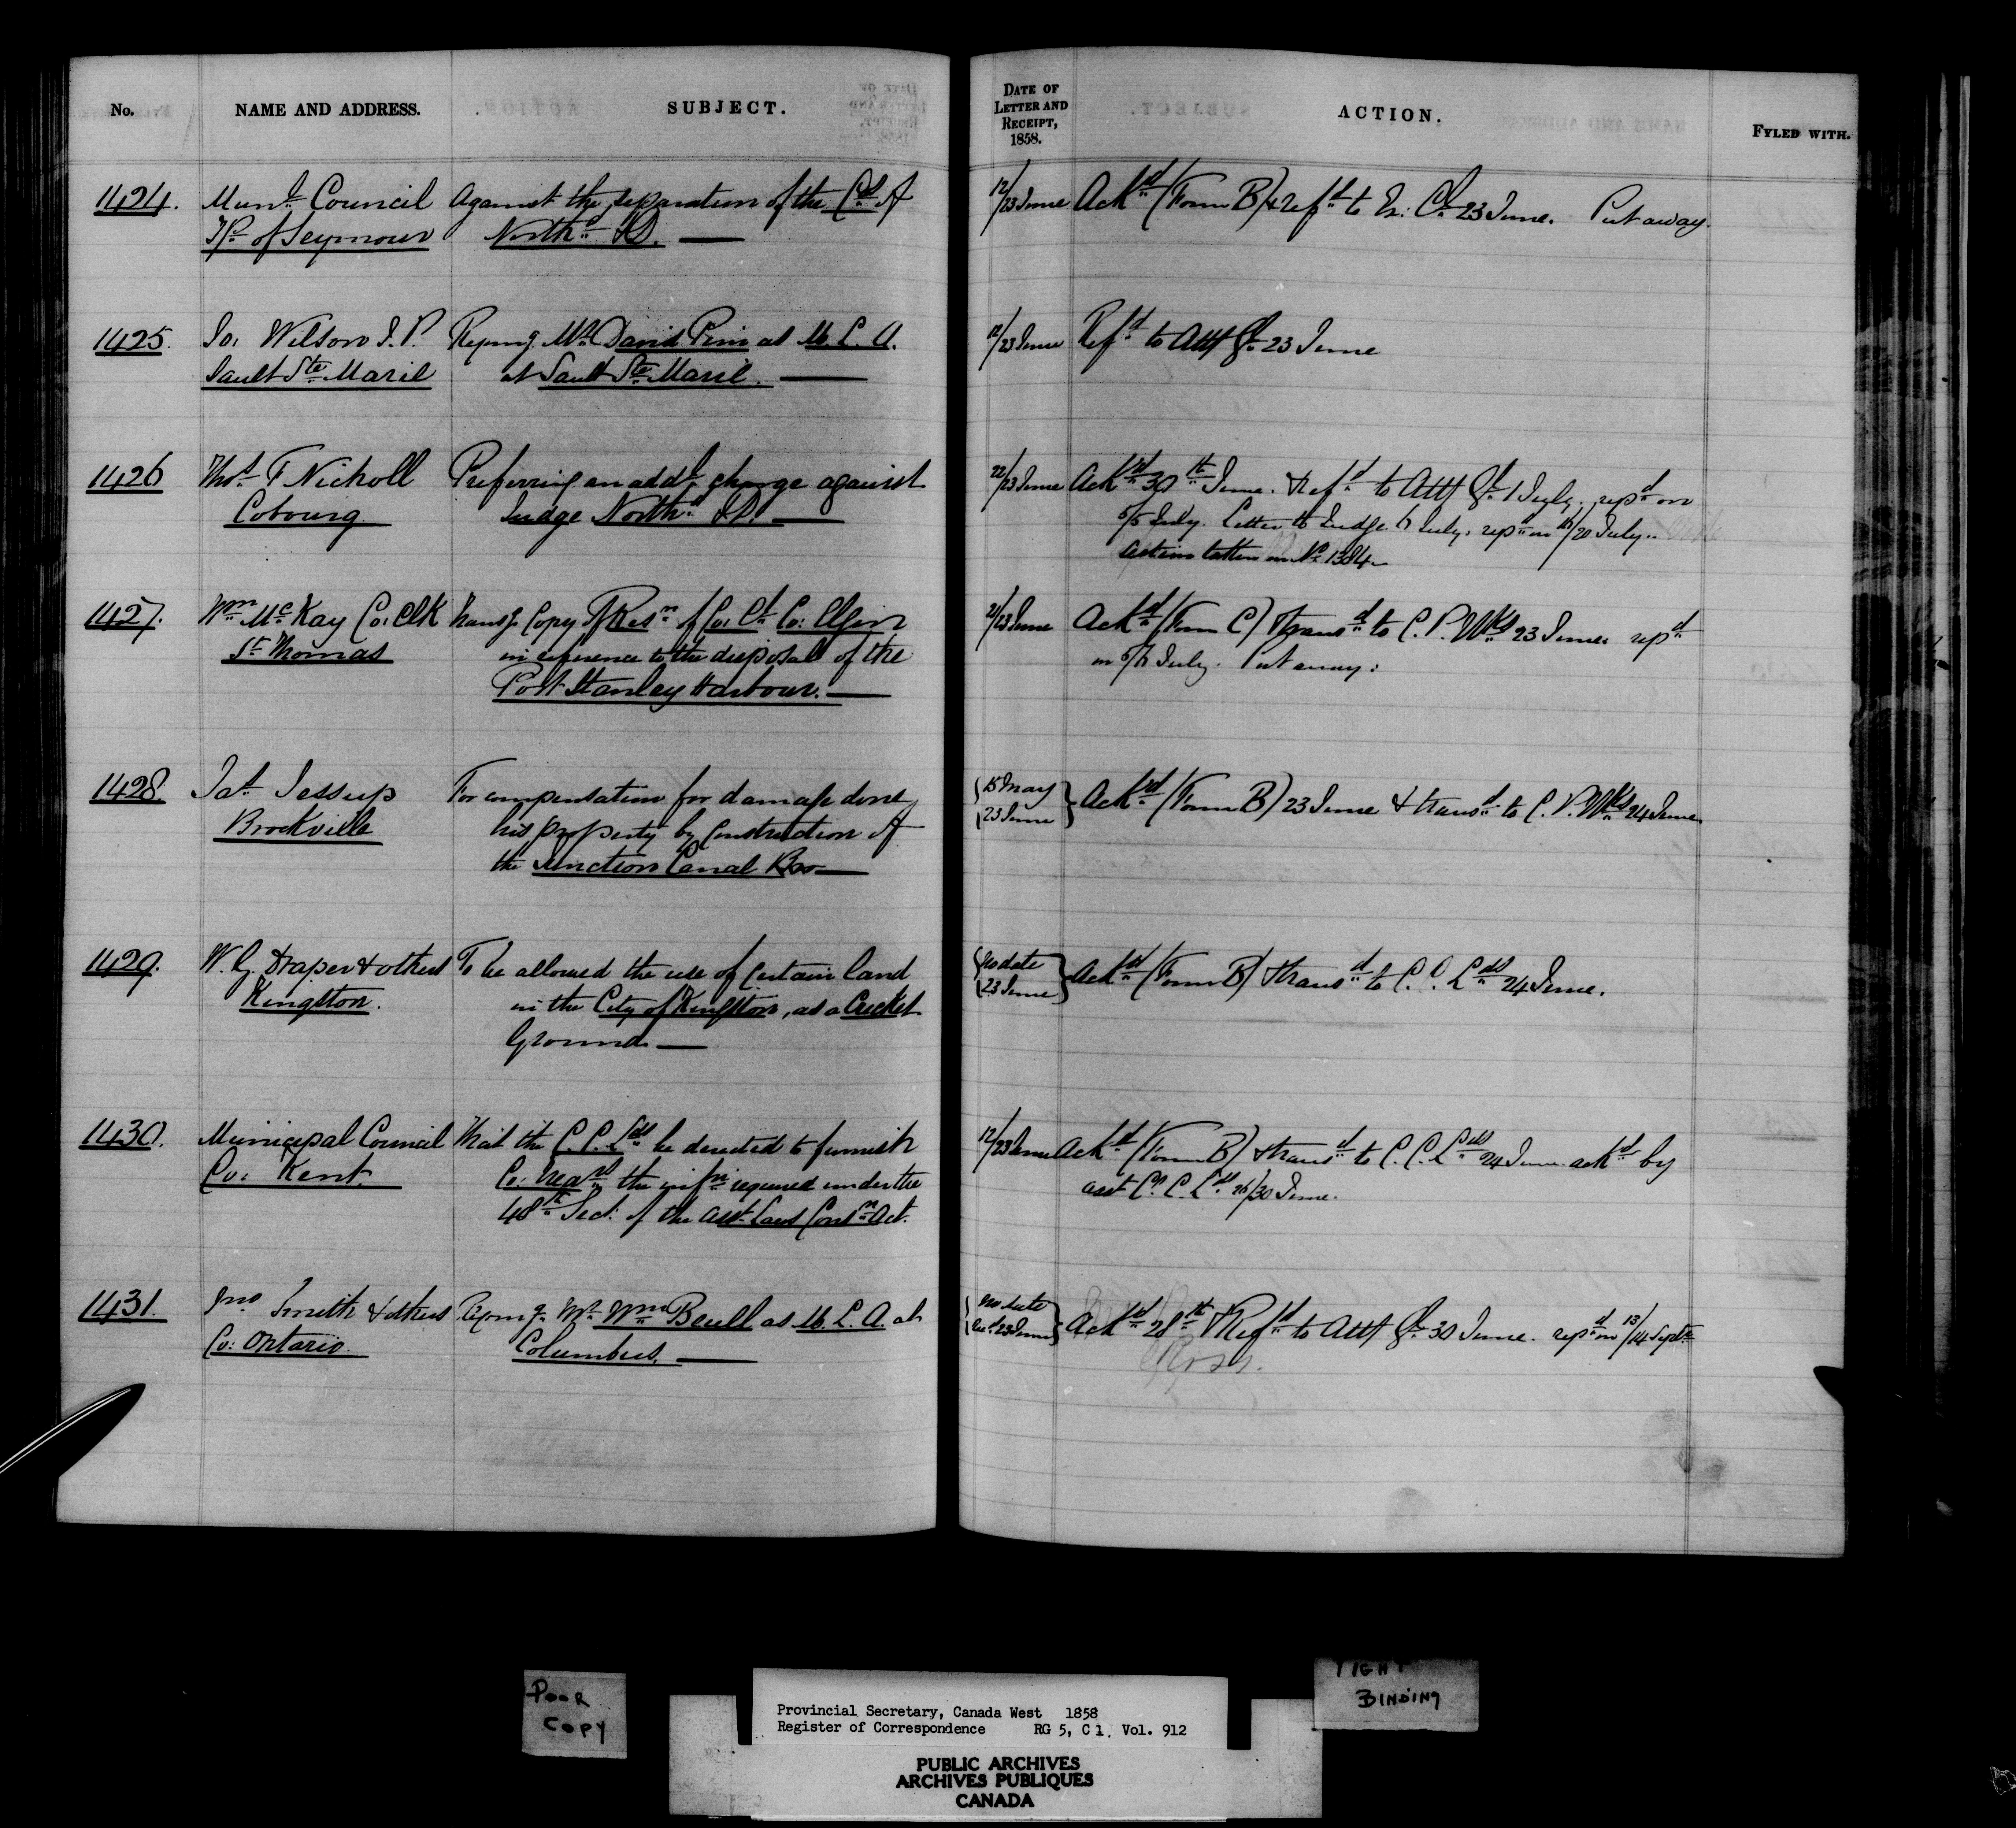 No. NAME AND ADDRESS. SUBJECT. DATE OF LETTER AND RECEIPT, 1858. ACTION. FYLED WITH.
1424. Munl. Council Against the separation of the Cos. of 12/23 June Ackd. (Form B) & refd. to Ex: Cl. 23 June. Put away.
Tp. of Seymour Northd. & D.
1425. Jos. Wilson J.P. Repng. Mr. David Pim as M. L. A. 12/23 June Refd. to Atty Gl. 23 June
Sault Ste. Marie at Sault Ste. Marie.
1426 Thos. F Nicholl Preferring an addl. charge against 22/23 June Ackd. 30th June. & refd. to Atty Gl. 1 July, repd. on
Cobourg. Judge Northd. & D. 5/6 July. Letter to Judge 6 July. repd. on /20 July.
Action taken on No. 1384
1427. Wm. McKay Co: Clk Transg. Copy of Resn. of Co: Cl. Co: Elgin 21/23 June Ackd. (Form C) & transd. to C. P. Wks 23 June. repd.
St. Thomas in reference to the disposal of the on 5/6 July. Put away.
Port Stanley Harbour.
1428. Jas. Jessup For compensation for damage done 15 May Ackd. (Form B) 23 June & transd. to C. P. Wks 24 June
Brockville his property by Construction of 23 June
the Junction Canal
1429. W. G. Draper & others To be allowed the use of certain land No date Ackd. (Form B) & transd. to C. C. Lds. 24 June.
Kingston. in the City of Kingston, as a Cricket 23 June
Ground.
1430. Municipal Council That the C. C. Lds. be directed to furnish 12/23 June Ackd. (Form B) & transd. to C. C. Lds. 24 June. ackd. by
Co: Kent. Co: Treasr. the infn. required under the asst. C. C. Lds. 26/30 June.
48th Sect. of the Asst. Laws Consn. Act.
1431. Jno Smith & others Repng. Mr. Wm. Beall as M. L. A. at No date Ackd. 28th & Refd. to Atty Gl. 30 June. repd. on 13/14 Septr.
Co: Ontario. Columbus. Recd. 23 June
Ross.
POOR
COPY
TIGHT
BINDING
Provincial Secretary, Canada West 1858
Register of Correspondence RG 5, C 1, Vol. 912
PUBLIC ARCHIVES
ARCHIVES PUBLIQUES
CANADA